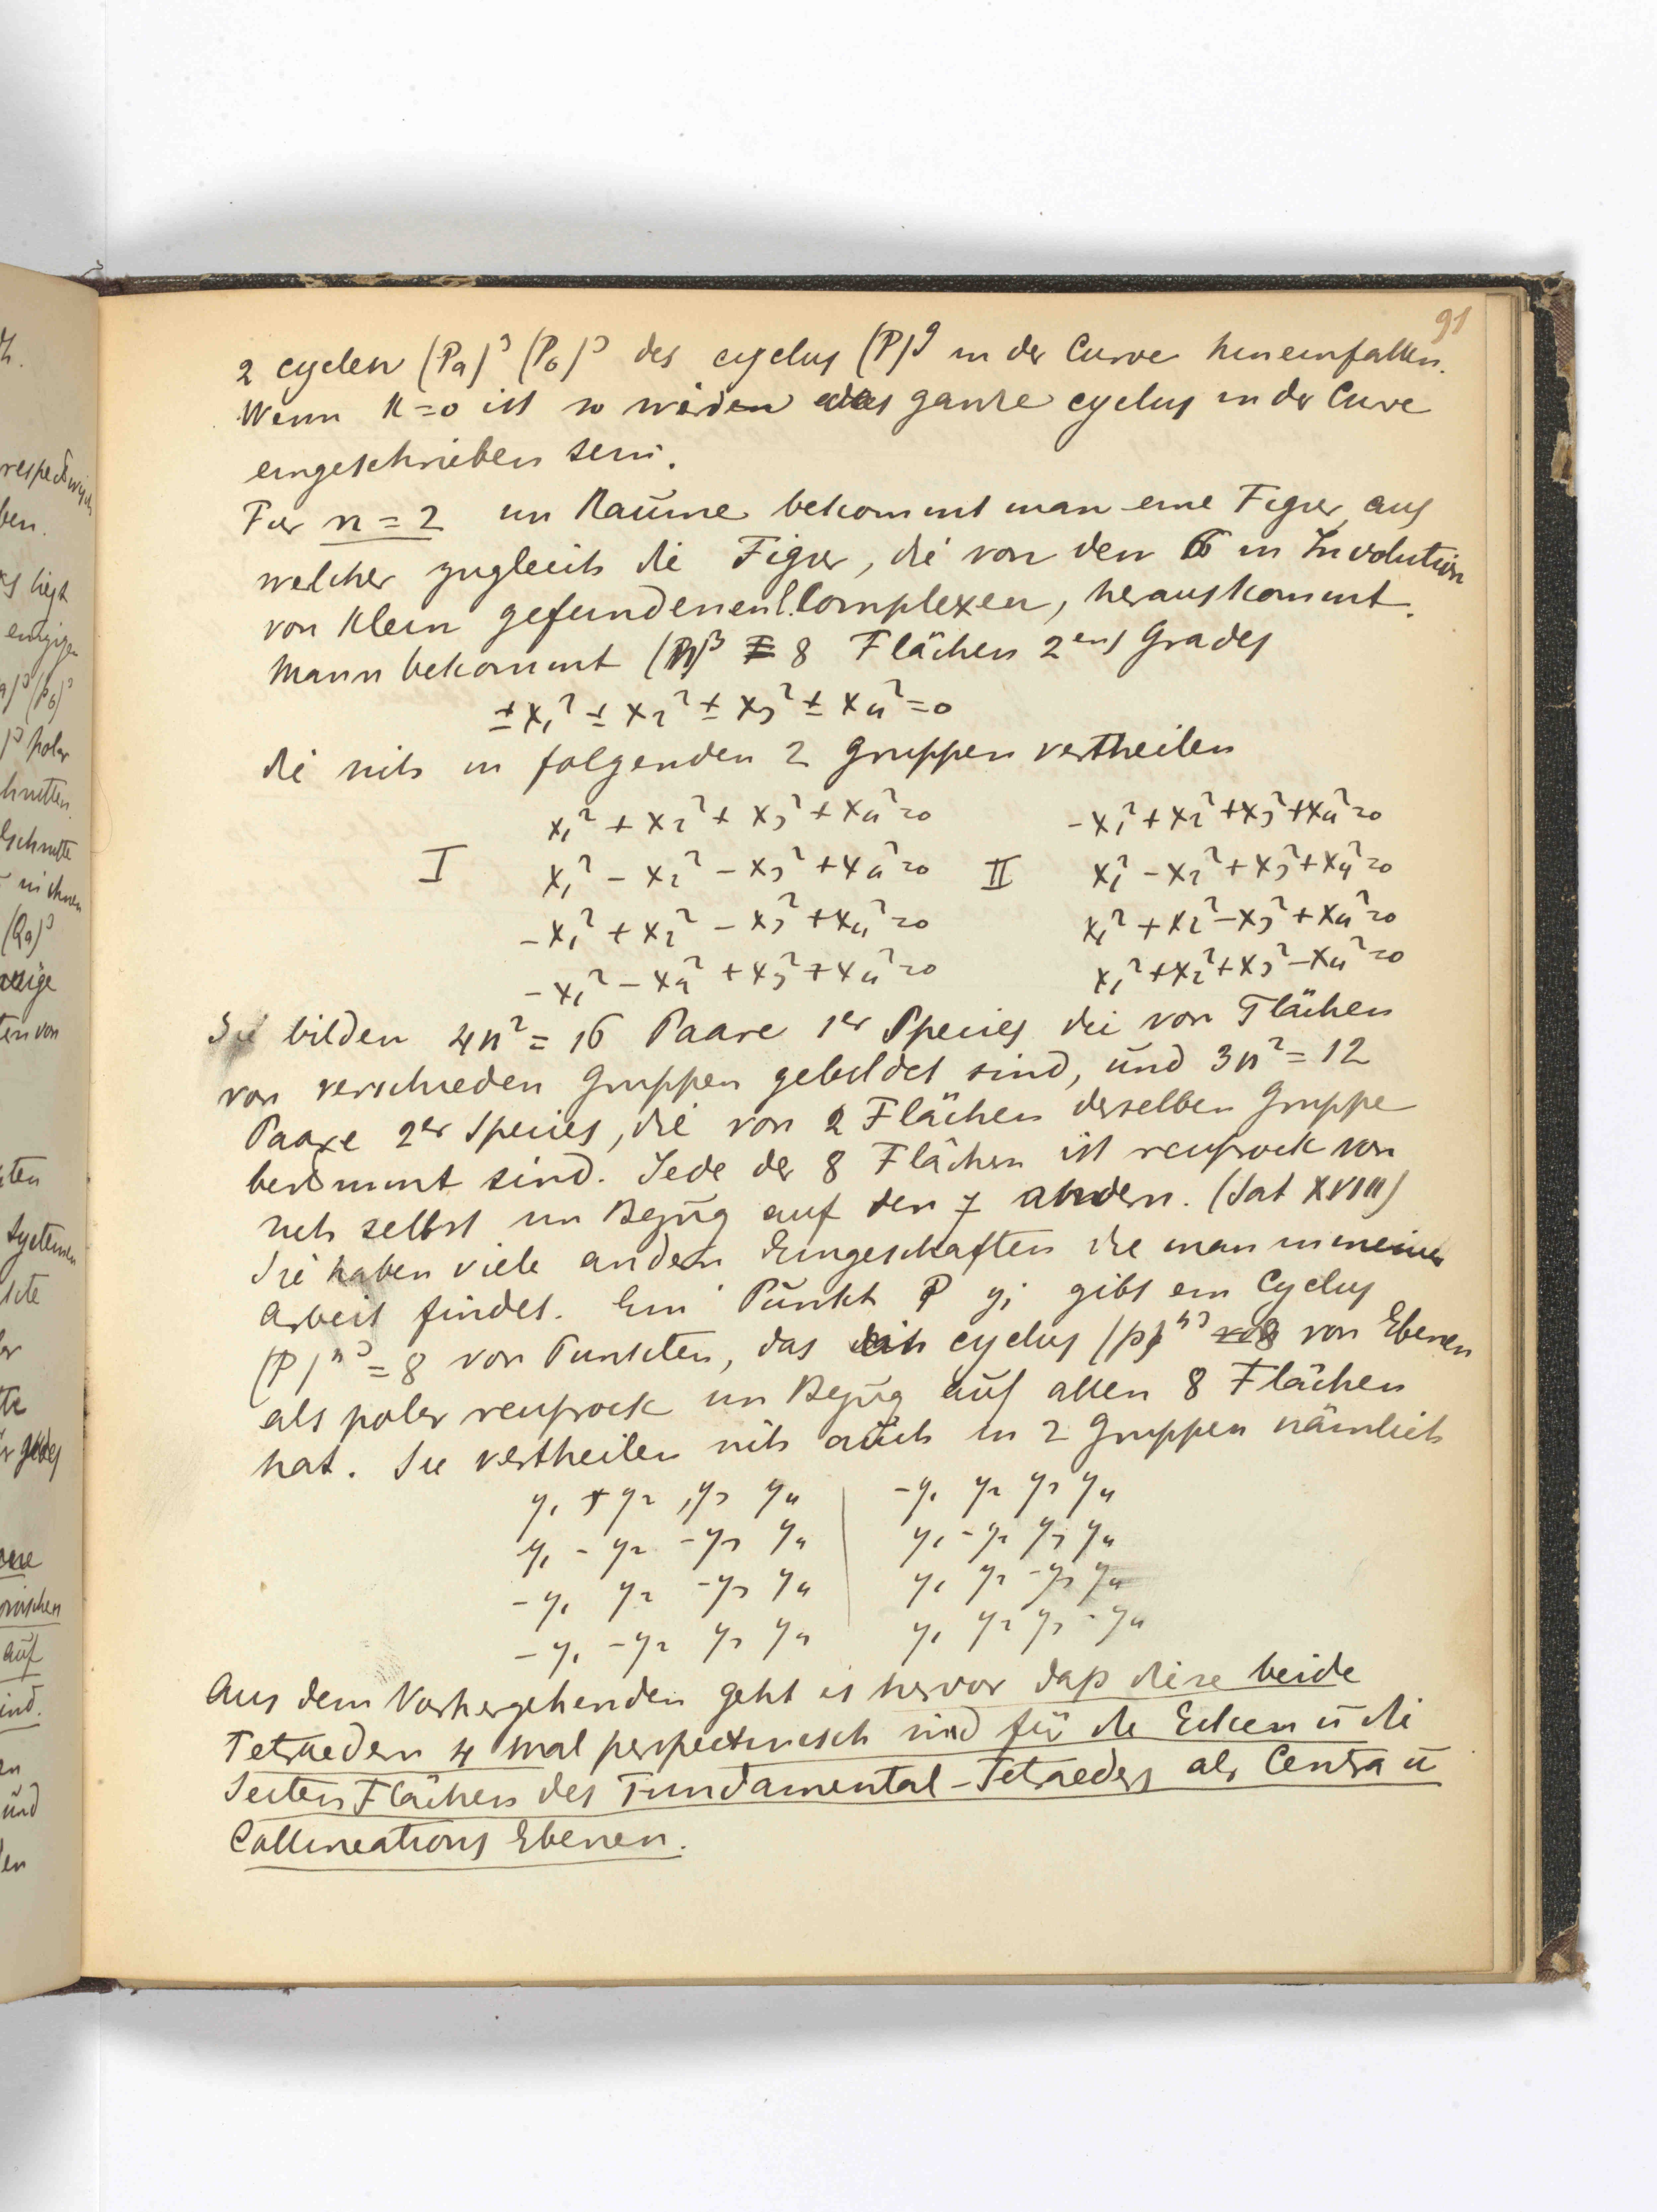 91
2 cyclen (Pa)³ (Pb)³ des cyclus (P)⁹ in der Curve hineinfallen.
Wenn K=0 ist so werden das ganze cyclus in der Curve
eingeschrieben sein.
Fur n=2 im Raume bekommt man eine Figur, aus
welcher zugleich die Figur, die von den 6 in Involution
von Klein gefundenen Complexen, herauskommt.
Mann bekommt 8 Flächen 2ens Grades
±x₁² ± x₂² ± x₃² ± x₄² = 0
die sich in folgenden 2 Gruppen vertheilen
x₁² + x₂² + x₃² + x₄² = 0 -x₁² + x₂² + x₃² + x₄² = 0
I x₁² - x₂² - x₃² + x₄² = 0 II x₁² - x₂² + x₃² + x₄² = 0
-x₁² + x₂² - x₃² + x₄² = 0 x₁² + x₂² - x₃² + x₄² = 0
-x₁² - x₂² + x₃² + x₄² = 0 x₁² + x₂² + x₃² - x₄² = 0
Sie bilden 4n² = 16 Paare 1er Species die von Flächen
von verschieden Gruppen gebildet sind, und 3n² = 12
Paare 2er Species, die von 2 Flächen derselben Gruppe
bestimmt sind. Jede der 8 Flächen ist reciprock von
sich selbst im Bezug auf den 7 andern. (Sat XVIII)
Sie haben viele andern Eingeschaften die man in meiner
Arbeit findet. Ein Punkt P yi gibt ein Cyclus
(P)ⁿ³ = 8 von Punkten, das ein cyclus (p)ⁿ³ von Ebenen
als polar reciprock im Bezug auf allen 8 Flächen
hat. Sie vertheilen sich auch in 2 Gruppen nämlich
y₁ + y₂, y₃ y₄ | -y₁ y₂ y₃ y₄
y₁ - y₂ -y₃ y₄ | y₁ -y₂ y₃ y₄
-y₁ y₂ -y₃ y₄ | y₁ y₂ -y₃ y₄
-y₁ -y₂ y₃ y₄ y₁ y₂ y₃ -y₄
Aus dem Vorhergehenden geht es hervor daß diese beide
Tetraedern 4 mal perspectivisch sind für die Ecken ū die
Seiten Flächen des Fundamental-Tetraeders als Centra ū
Collineations Ebenen.